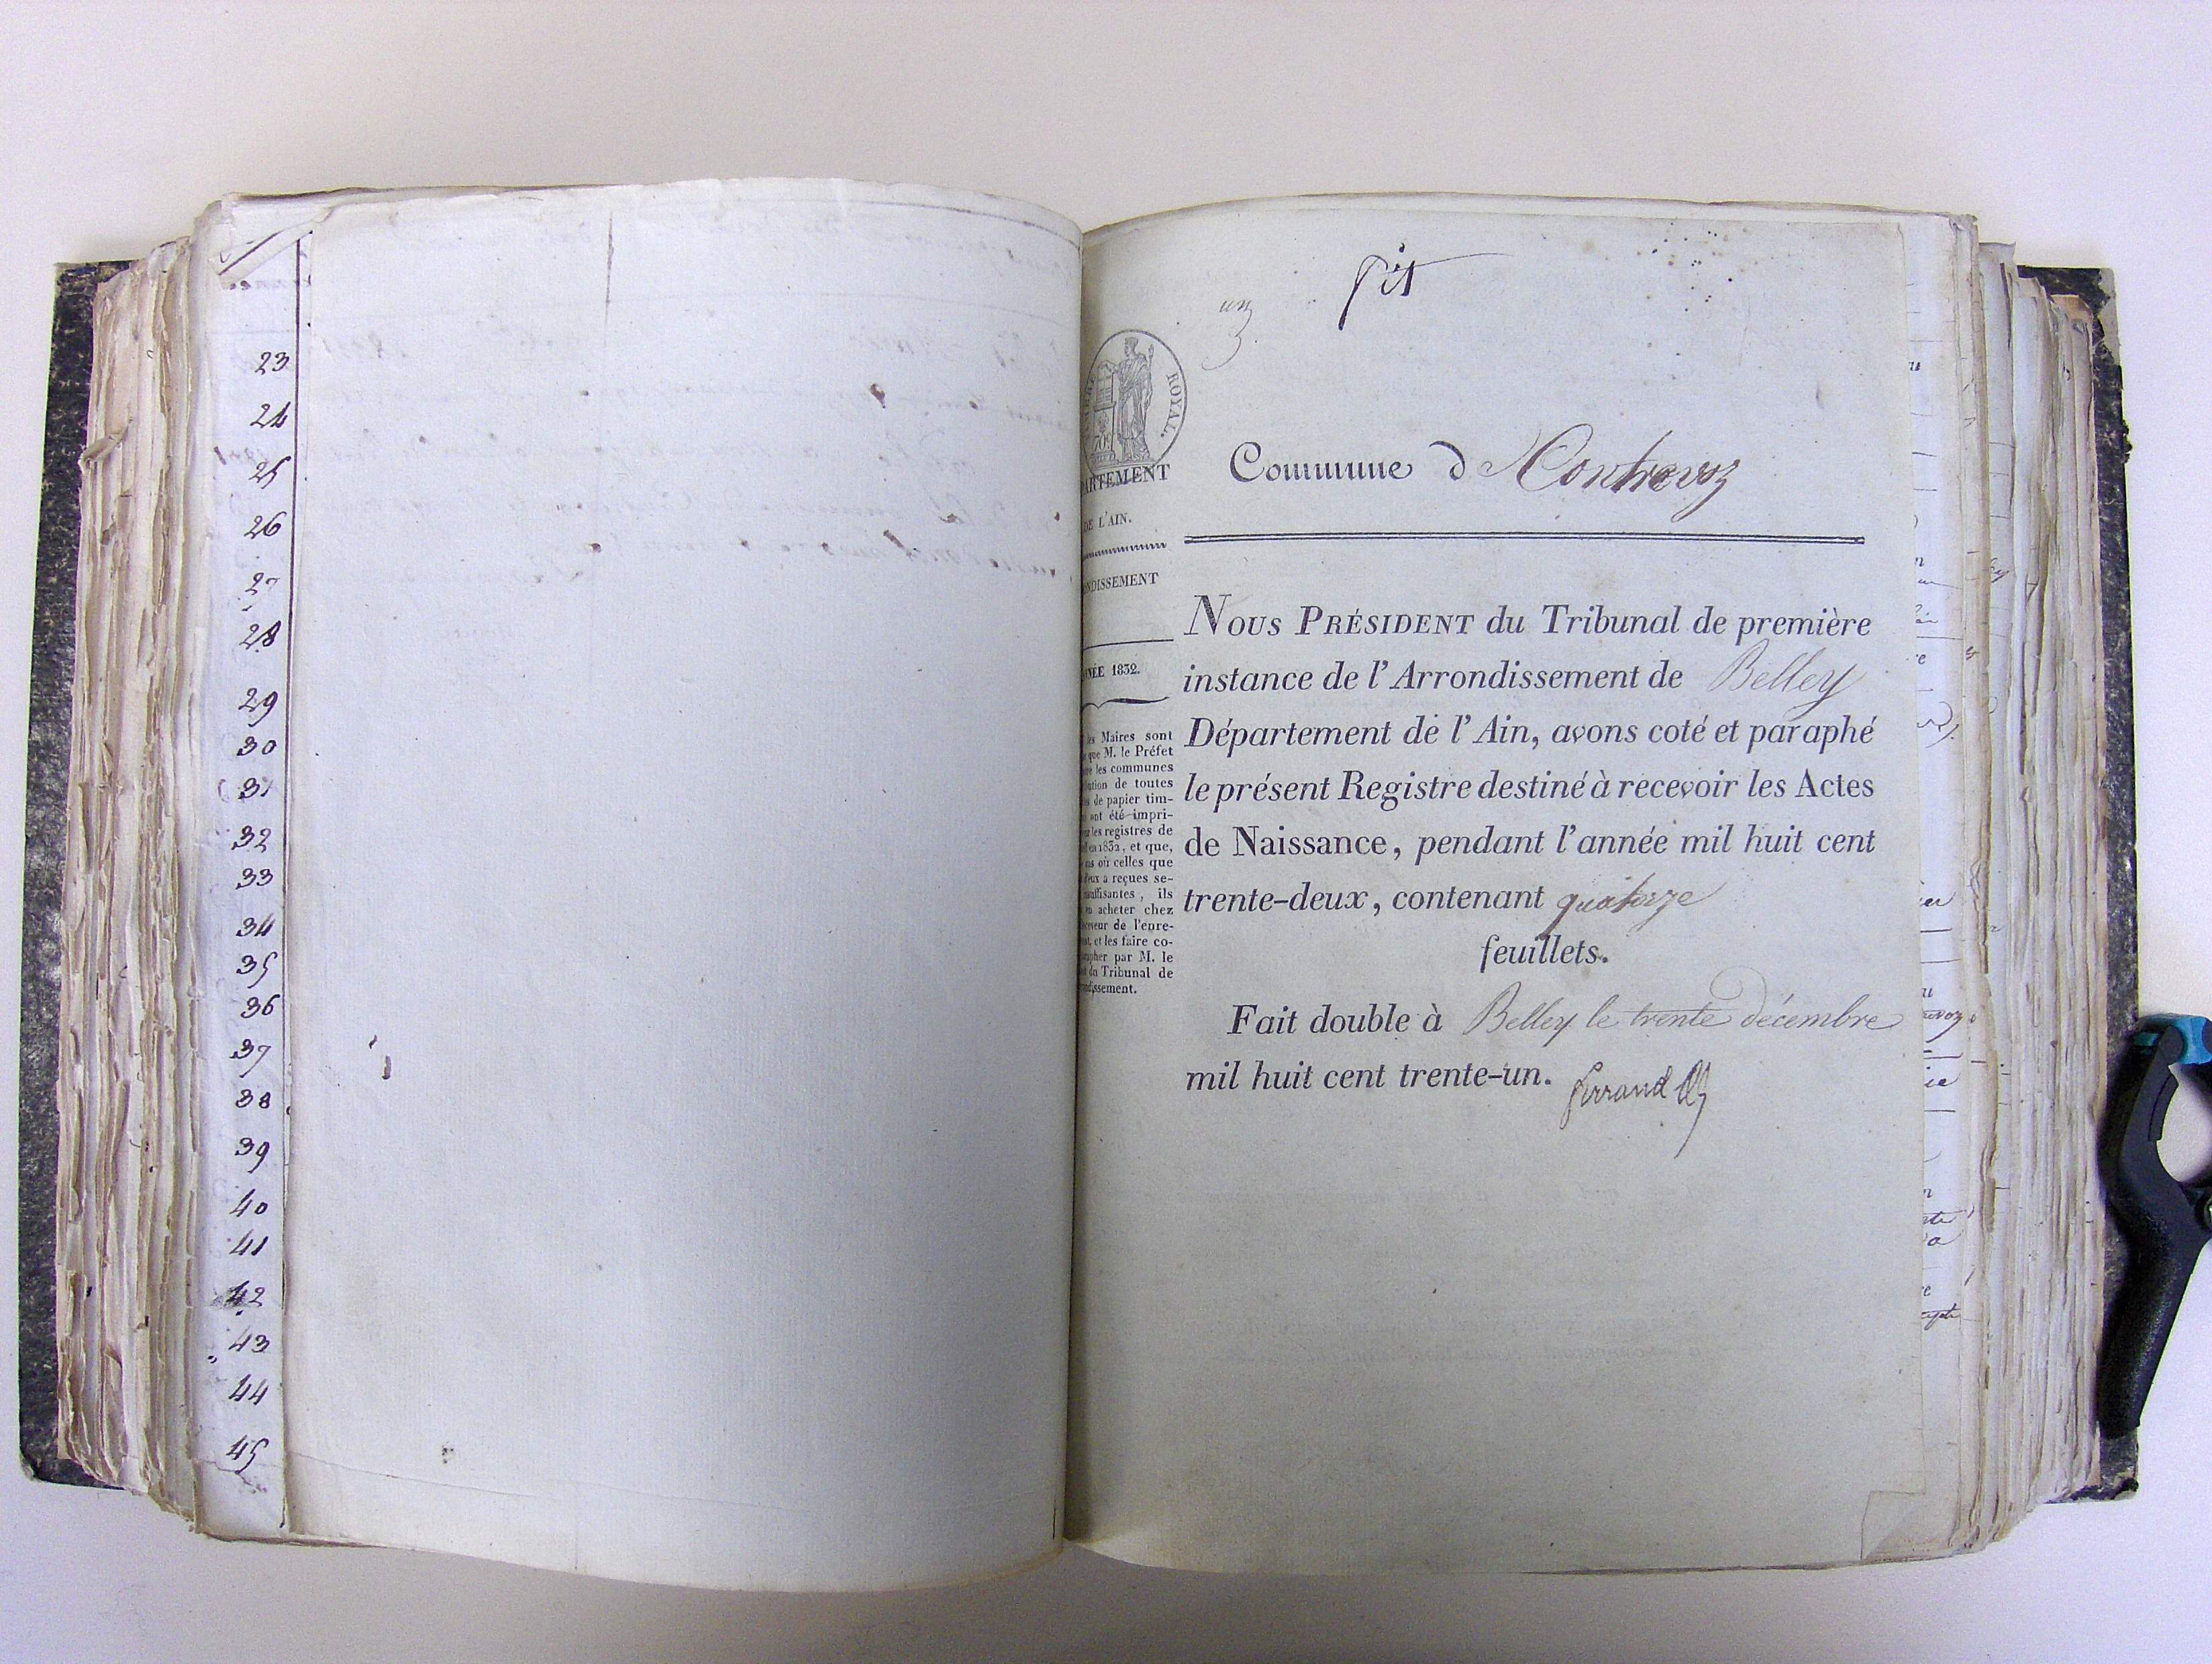 23
24
25
26
27
28
29
30
31
32
33
34
35
36
37
38
39
40
41
42
43
44
45
un
ROYAL.
70
PARTEMENT
DE L'AIN.
ONDISSEMENT
NÉE 1832.
les Maires sont
que M. le Préfet
les communes
de toutes
de papier tim-
ont été impri-
les registres de
1832, et que,
où celles que
a reçues se-
insuffisantes, ils
acheter chez
de l'enre-
et les faire co-
par M. le
du Tribunal de
Commune d Contrevoz
NOUS PRÉSIDENT du Tribunal de première
instance de l'Arrondissement de Belley
Département de l'Ain, avons coté et paraphé
le présent Registre destiné à recevoir les Actes
de Naissance, pendant l'année mil huit cent
trente-deux, contenant quatorze
feuillets.
Fait double à Belley le trente décembre
mil huit cent trente-un.